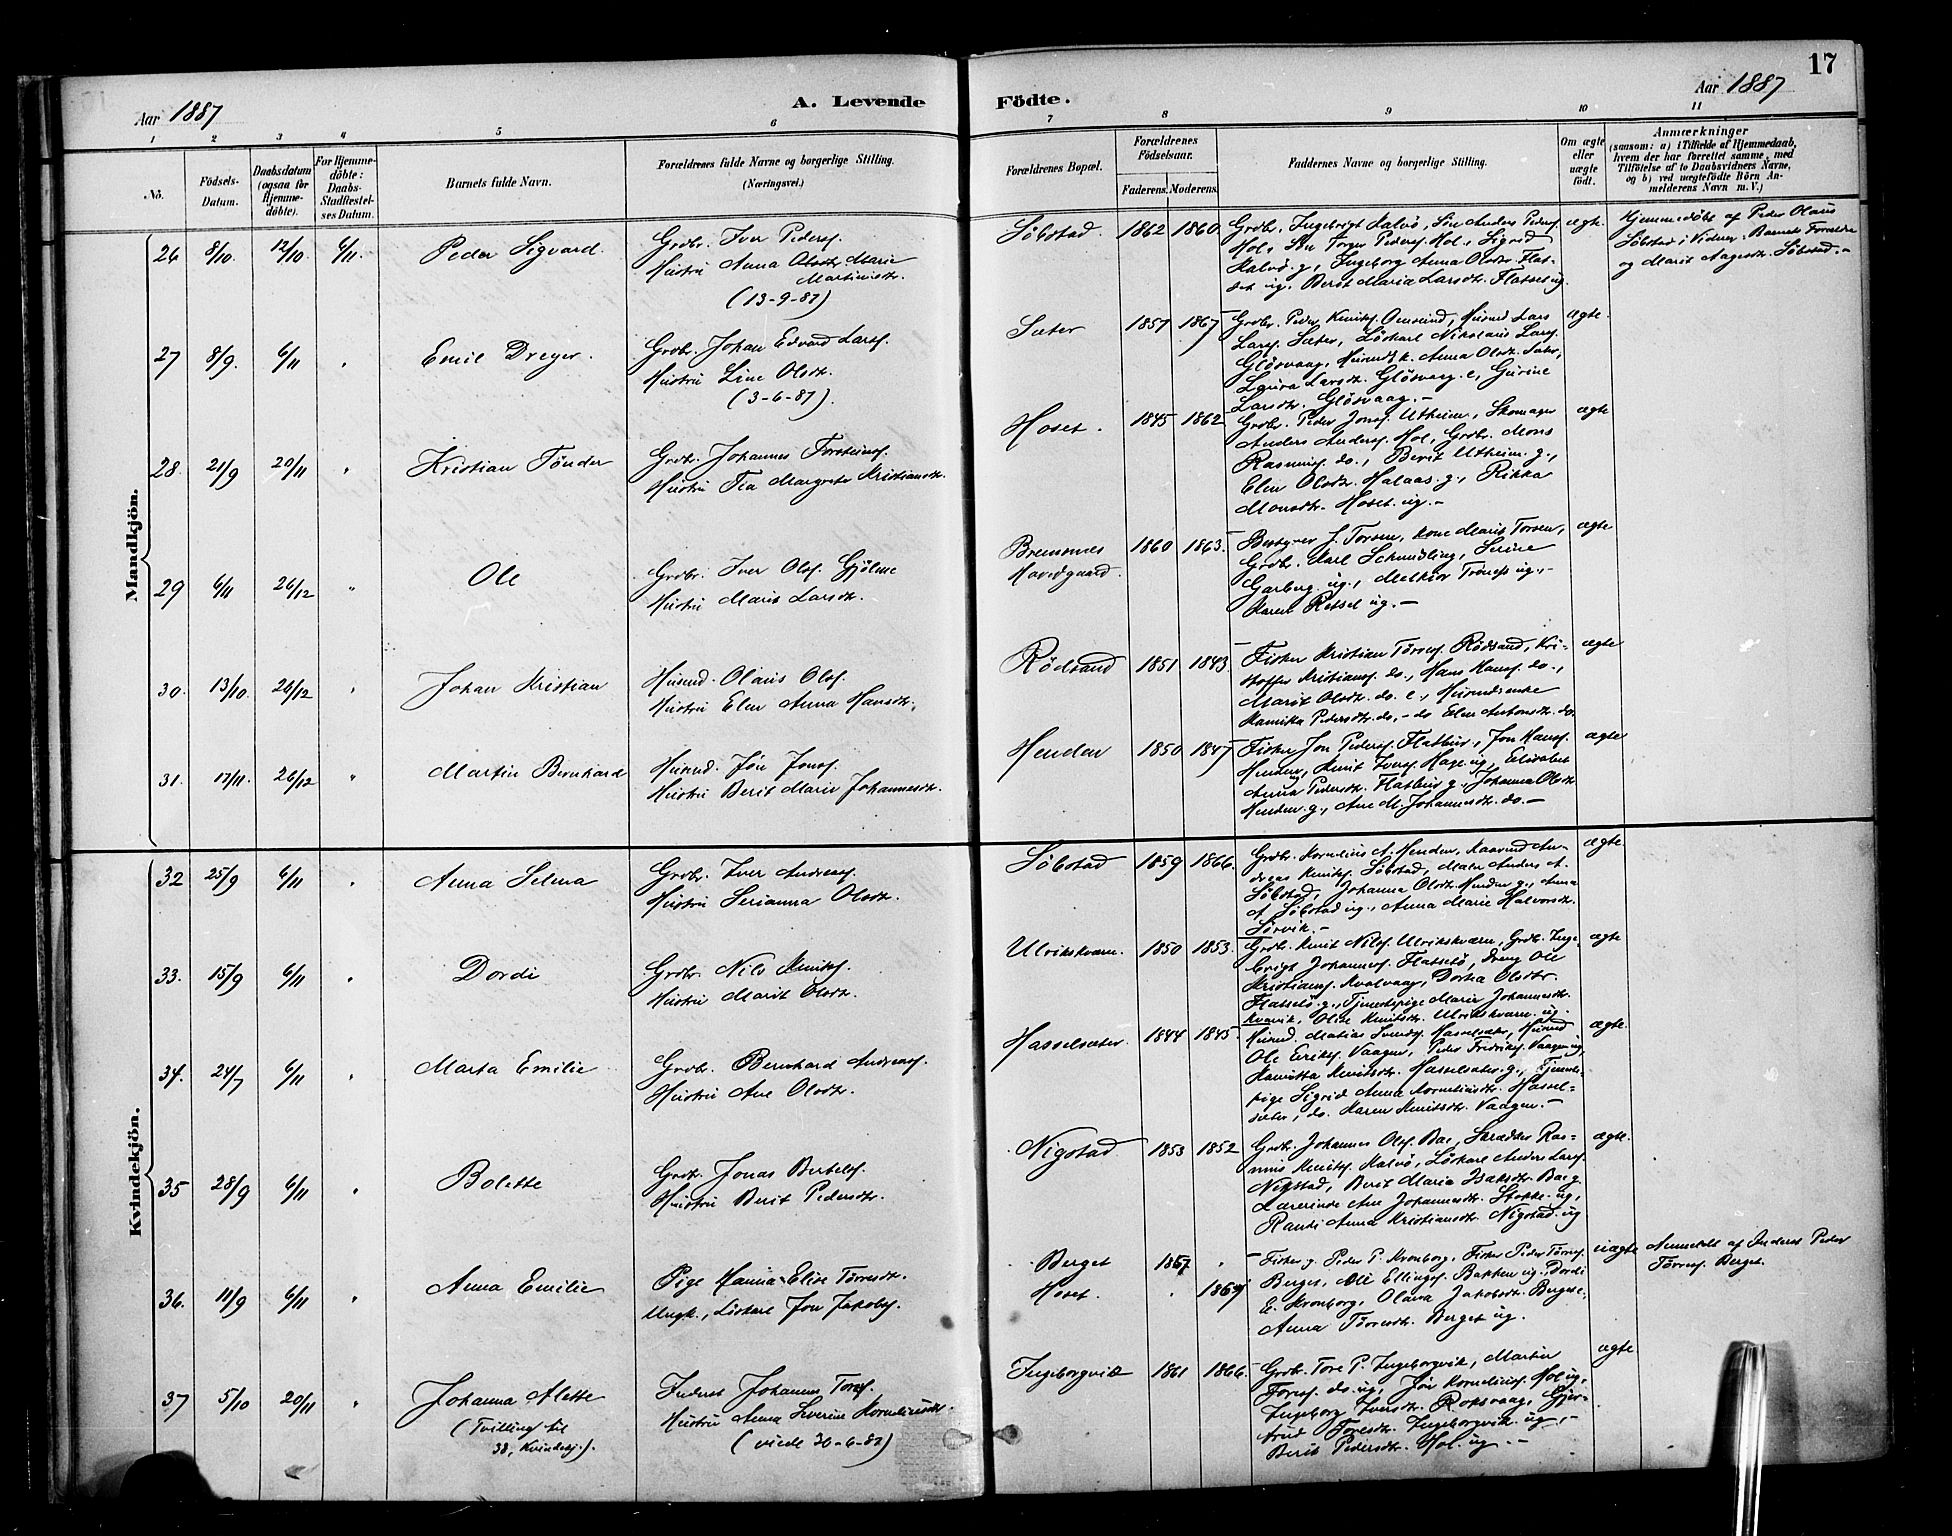 17
Aar 1887
A. Levende Födte.
Aar 1887
1 2 3 4 5 6 7 8 9 10 11
No.
Födsels-Datum.
Daabsdatum (ogsaa for Hjemme-döbte).
For Hjemme-döbte: Daabs-Stadfæstel-ses Datum.
Barnets fulde Navn.
Forældrenes fulde Navne og borgerlige Stilling.
(Næringsvei.)
Forældrenes Bopæl.
Forældrenes Födselsaar.
Faderens. Moderens.
Faddernes Navne og borgerlige Stilling.
Om ægte eller uægte födt.
Anmærkninger
(saasom: a) i Tilfælde af Hjemmedaab,
hvem der har forrettet samme, med
Tilföielse af to Daabsvidners Navne,
og b) ved uægtefödte Börn An-
melderens Navn m. V.)
Mandkjön.
26 8/10. 12/10. 6/11. Peder Sigvard.
Grdbr. Iver Peders.
Hustru Anna Olsdtr. Marie
Martinusdtr.
(13-9-87)
Söbstad. 1862 1860
Grdbr. Ingebrigt Kalvö, Sön Anders Peders.
Hol, Sön Torger Peders. Hol, Sigrid
Kalvö g., Ingeborg Anna Olsdtr. Flat-
set ug. Berit Maria Larsdtr. Flatset ug.
ægte.
Hjemmedöbt af Peder Olaus
Söbstad i Vidners. Barnets Forældre
og Marit Aagesdtr. Söbstad.-
27 8/9. 6/11 " Emil Dreyer.
Grdbr. Johan Edvard Lars.
Hustru Line Olsdtr.
(3-6-87).
Sæter 1857 1867
Grdbr. Peder Knuts. Omsund, Husmd Lars
Lars. Sæter, Löskarl Nikolaus Lars.
Glösvaag, Husmdsk. Anna Olsdtr. Sæter,
Laura Larsdtr. Glösvaag. e, Gurine
Larsdtr. Glösvaag.-
ægte.
28 21/9 20/11 " Kristian Tönder
Grdbr. Johannes Torsteins.
Hustru Fia Margrete Kristiansdtr.
Hoset. 1845 1862
Grdbr. Peder Jons. Utheim, Skomager
Anders Anders. Hol, Grdbr. Mons
Rasmus. do., Berit Utheim g.,
Elen Olsdtr. Halaas. g., Rikka
Monsdtr. Hoset. ug.-
ægte
29 6/11 26/12 " Ole
Grdbr. Iver Ols. Gjölme
Hustru Marit Larsdtr.
Bremsnes
Hovedgaard. 1860 1863.
Bestyrer J. Torsen, kone Marit Torsen,
Grdbr. Karl Schmidling, Serine
Garberg ug., Melkior Töress ug.,
Karen Retsel ug.-
ægte
30. 13/10. 26/12 " Johan Kristian
Husmd. Olaus Ols.
Hustru Elen Anna Hansdtr.
Rödsand 1851 1843
Fisker Kristian Törres. Rödsand, Kri-
stoffer Kristians. do., Hans Hans. do.,
Marit Olsdtr. do. e., Husmdsenke
Kanuka Pedersdtr. do.,- do Elen Antonsdtr. do.
ægte
31. 17/11. 26/12 " Martin Bernhard
Husmd. Jön Jons.
Hustru Berit Marie Johannesdtr.
Henden 1850 1847
Fisker Jon Peders. Flatbur, Jon Hans.
Henden, Knut Ivers. Hage ug, Elisabet
Anna Pedersdtr. Flatbur g., Johanna Olsdtr.
Henden. g., Ane M. Johannesdtr. do.-
ægte
Kvindekjön.
32 25/9 6/11 " Anna Selma
Grdbr. Iver Andreas.
Hustru Serianna Olsdtr.
Söbstad 1859 1866.
Grdbr. Kornelius A. Henden, Kaarmd An-
dreas Knuts. Söbstad, Maler Anders A.
Söbstad, Johanna Olsdtr. Henden g., Anna
A. Söbstad ug., Anna Marie Halvorsdtr.
Sörvik.-
ægte.
33. 15/9 6/11 " Dordi
Grdbr. Nils Knuts.
Hustru Marit Olsdtr.
Ulrikskværn. 1850 1853.
Grdbr. Knut Nils. Ulrikskværn, Grdbr. Inge-
brigt Johannes. Flatsetö, Dreng Ole
Kristians. Kvalvaag, Dortea Olsdtr.
Flatsetö. g., Tjenestepige Marie Johannesdtr.
Kvarvik, Oline Knutsdtr. Ulrikskværn. ug.
ægte
34. 24/7 6/11 " Marta Emilie
Grdbr. Bernhard Andreas.
Hustru Ane Olsdtr.
Hasselsæter. 1844 1845.
Husmd. Matias Svends. Hasselsæter, Husmd
Ole Eriks. Vaagen, Peder Fredriks. Vaagen ug,
Kanutta Knutsdtr. Hasselsæter g., Tjeneste-
pige Sigrid Anna Korneliusdtr. Hassel-
sæter, do. Karen Knutsdtr. Vaagen.-
ægte.
35 28/9 6/11 " Bolette
Grdbr. Jonas Bertels.
Hustru Berit Pedersdtr.
Nigstad 1853 1852
Grdbr. Johannes Ols. Bae, Skrædder Ras-
mus Knuts. Kalvö, Löskarl Anders Lars.
Nigstad, Berit Maria Isaksdtr. Bae g.
Lærerinde Ane Johannesdtr. Stokke. ug,
Randi Anna Kristiansdtr. Nigstad. ug
ægte.
36. 11/9 6/11 " Anna Emilie
Pige Hanna Elise Törresdtr.
Ungk., Löskarl Jon Jakobs.
Berget 1867 "
Hoset. " 1864
Fisker g. Peder P. Kronborg, Fisker Peder Törres.
Berget, Ole Ellings. Bakken ug. Dordi
E. Kronborg, Olava Jakobsdtr. Berget e,
Anna Törresdtr. Berget ug.
uægte
Anmeldt af Inderst Peder
Törres. Berget.
37 5/10 20/11 " Johanna Alette
(Tvilling til
38, Kvindekj.).
Inderst Johannes Tores.
Hustru Anna Severine Korneliusdtr.
(viede 30-6-87)
Ingeborgvik 1861 1866.
Grdbr. Tore P. Ingeborgvik, Martin
Tores. do. ug, Jön Kornelius. Hol ug,
Ingeborg Iversdtr. Roksvaag, Gjer-
trud Toresdtr. Ingeborgvik ug,-
Berit Pedersdtr. Hol. ug.-
ægte